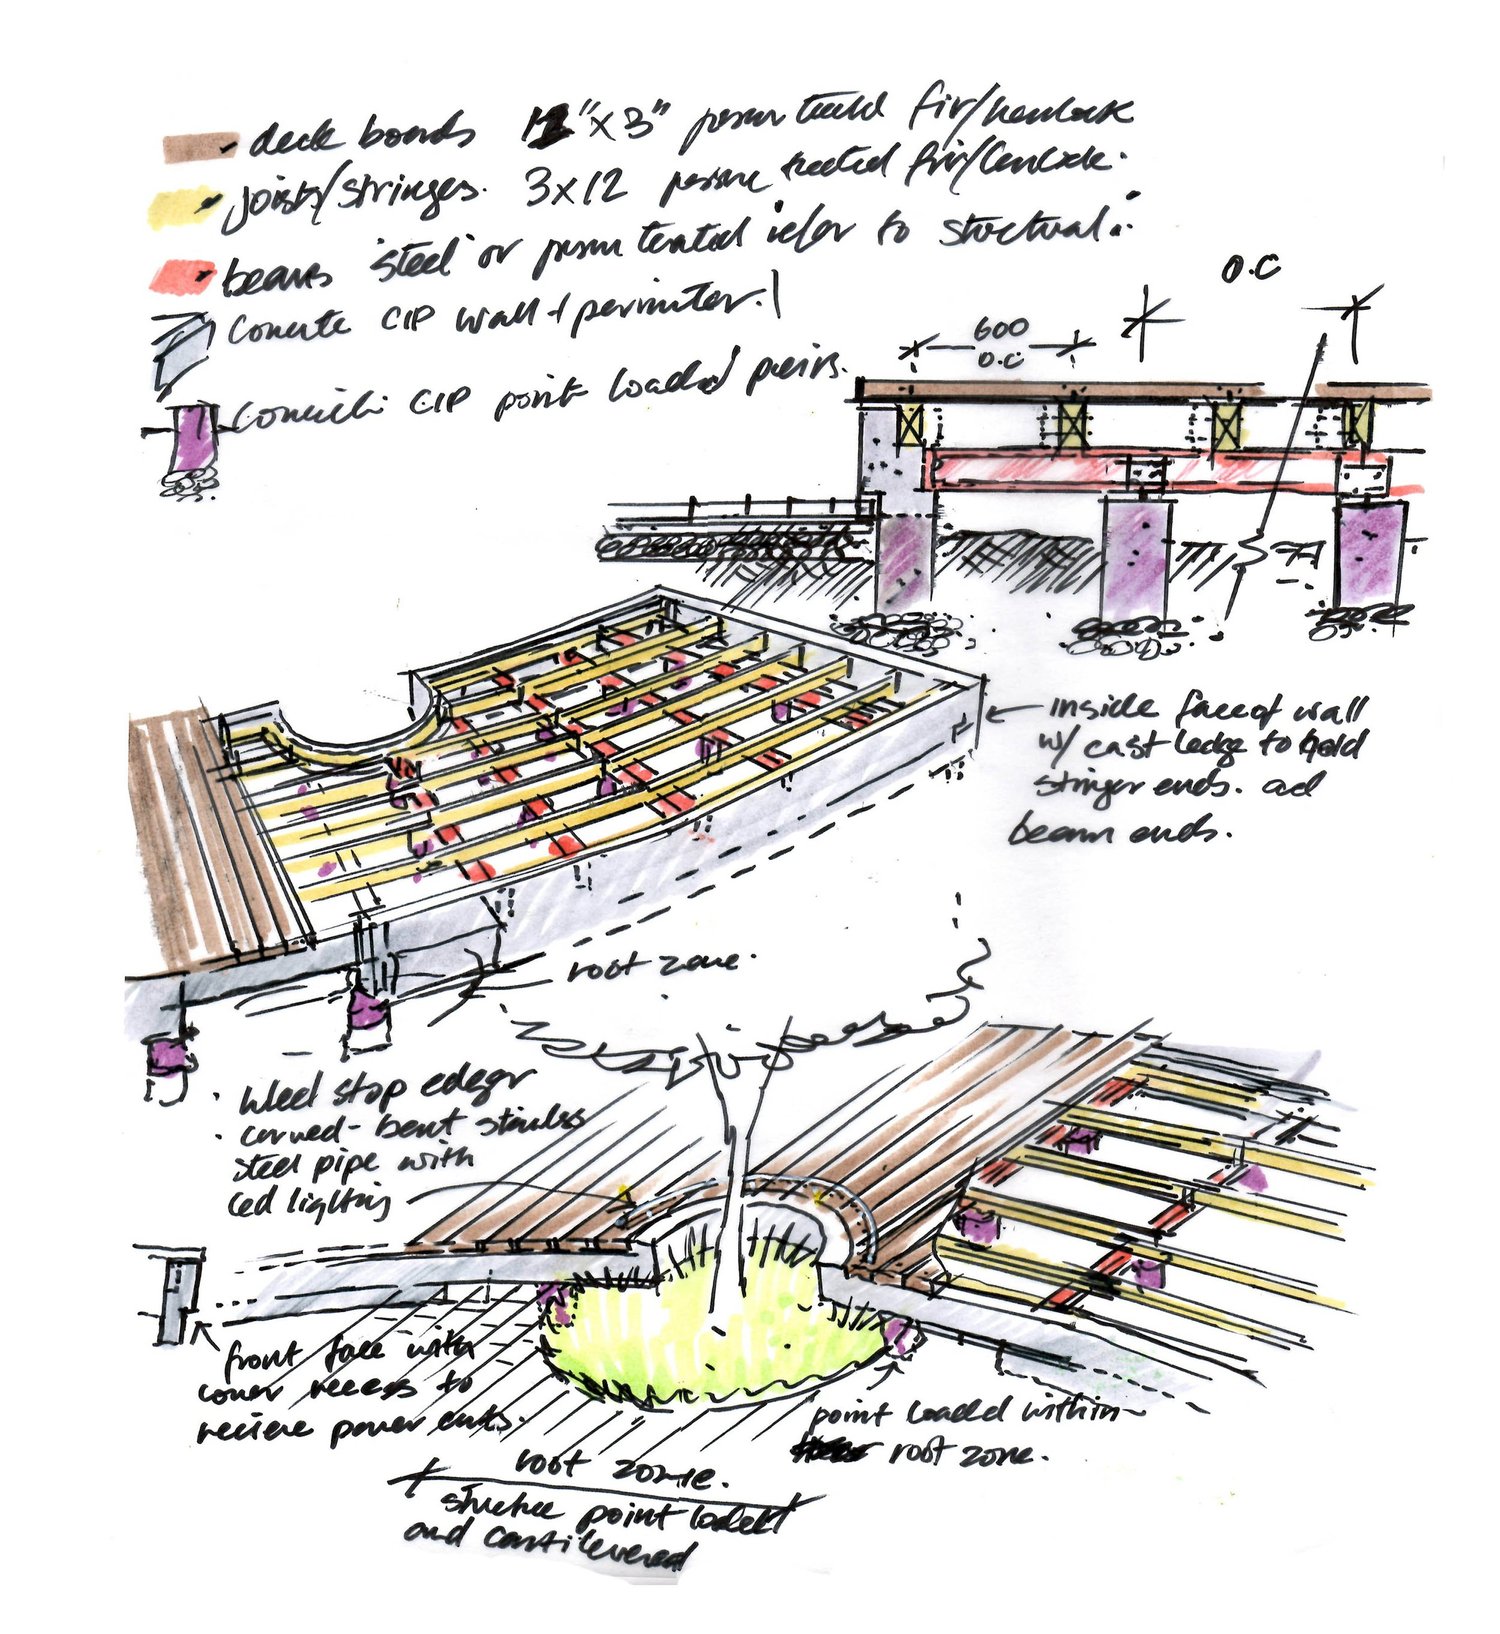 deck boards 12" x 3" pressure treated fir/hemlock
joists/stringers. 3x12 pressure treated fir/hemlock.
beams 'steel' or pressure treated refer to structural.
Concrete CIP wall + perimeter.
Concrete CIP point loaded piers.
O.C
600
O.C
inside face of wall
w/ cast ledge to hold
stringer ends. and
beam ends.
root zone.
· Wheel stop edger
· curved - bent stainless
steel pipe with
Led lighting
front face with
cover recess to
recieve power ends.
point loaded within
root zone.
root zone.
structure point loaded
and cantilevered